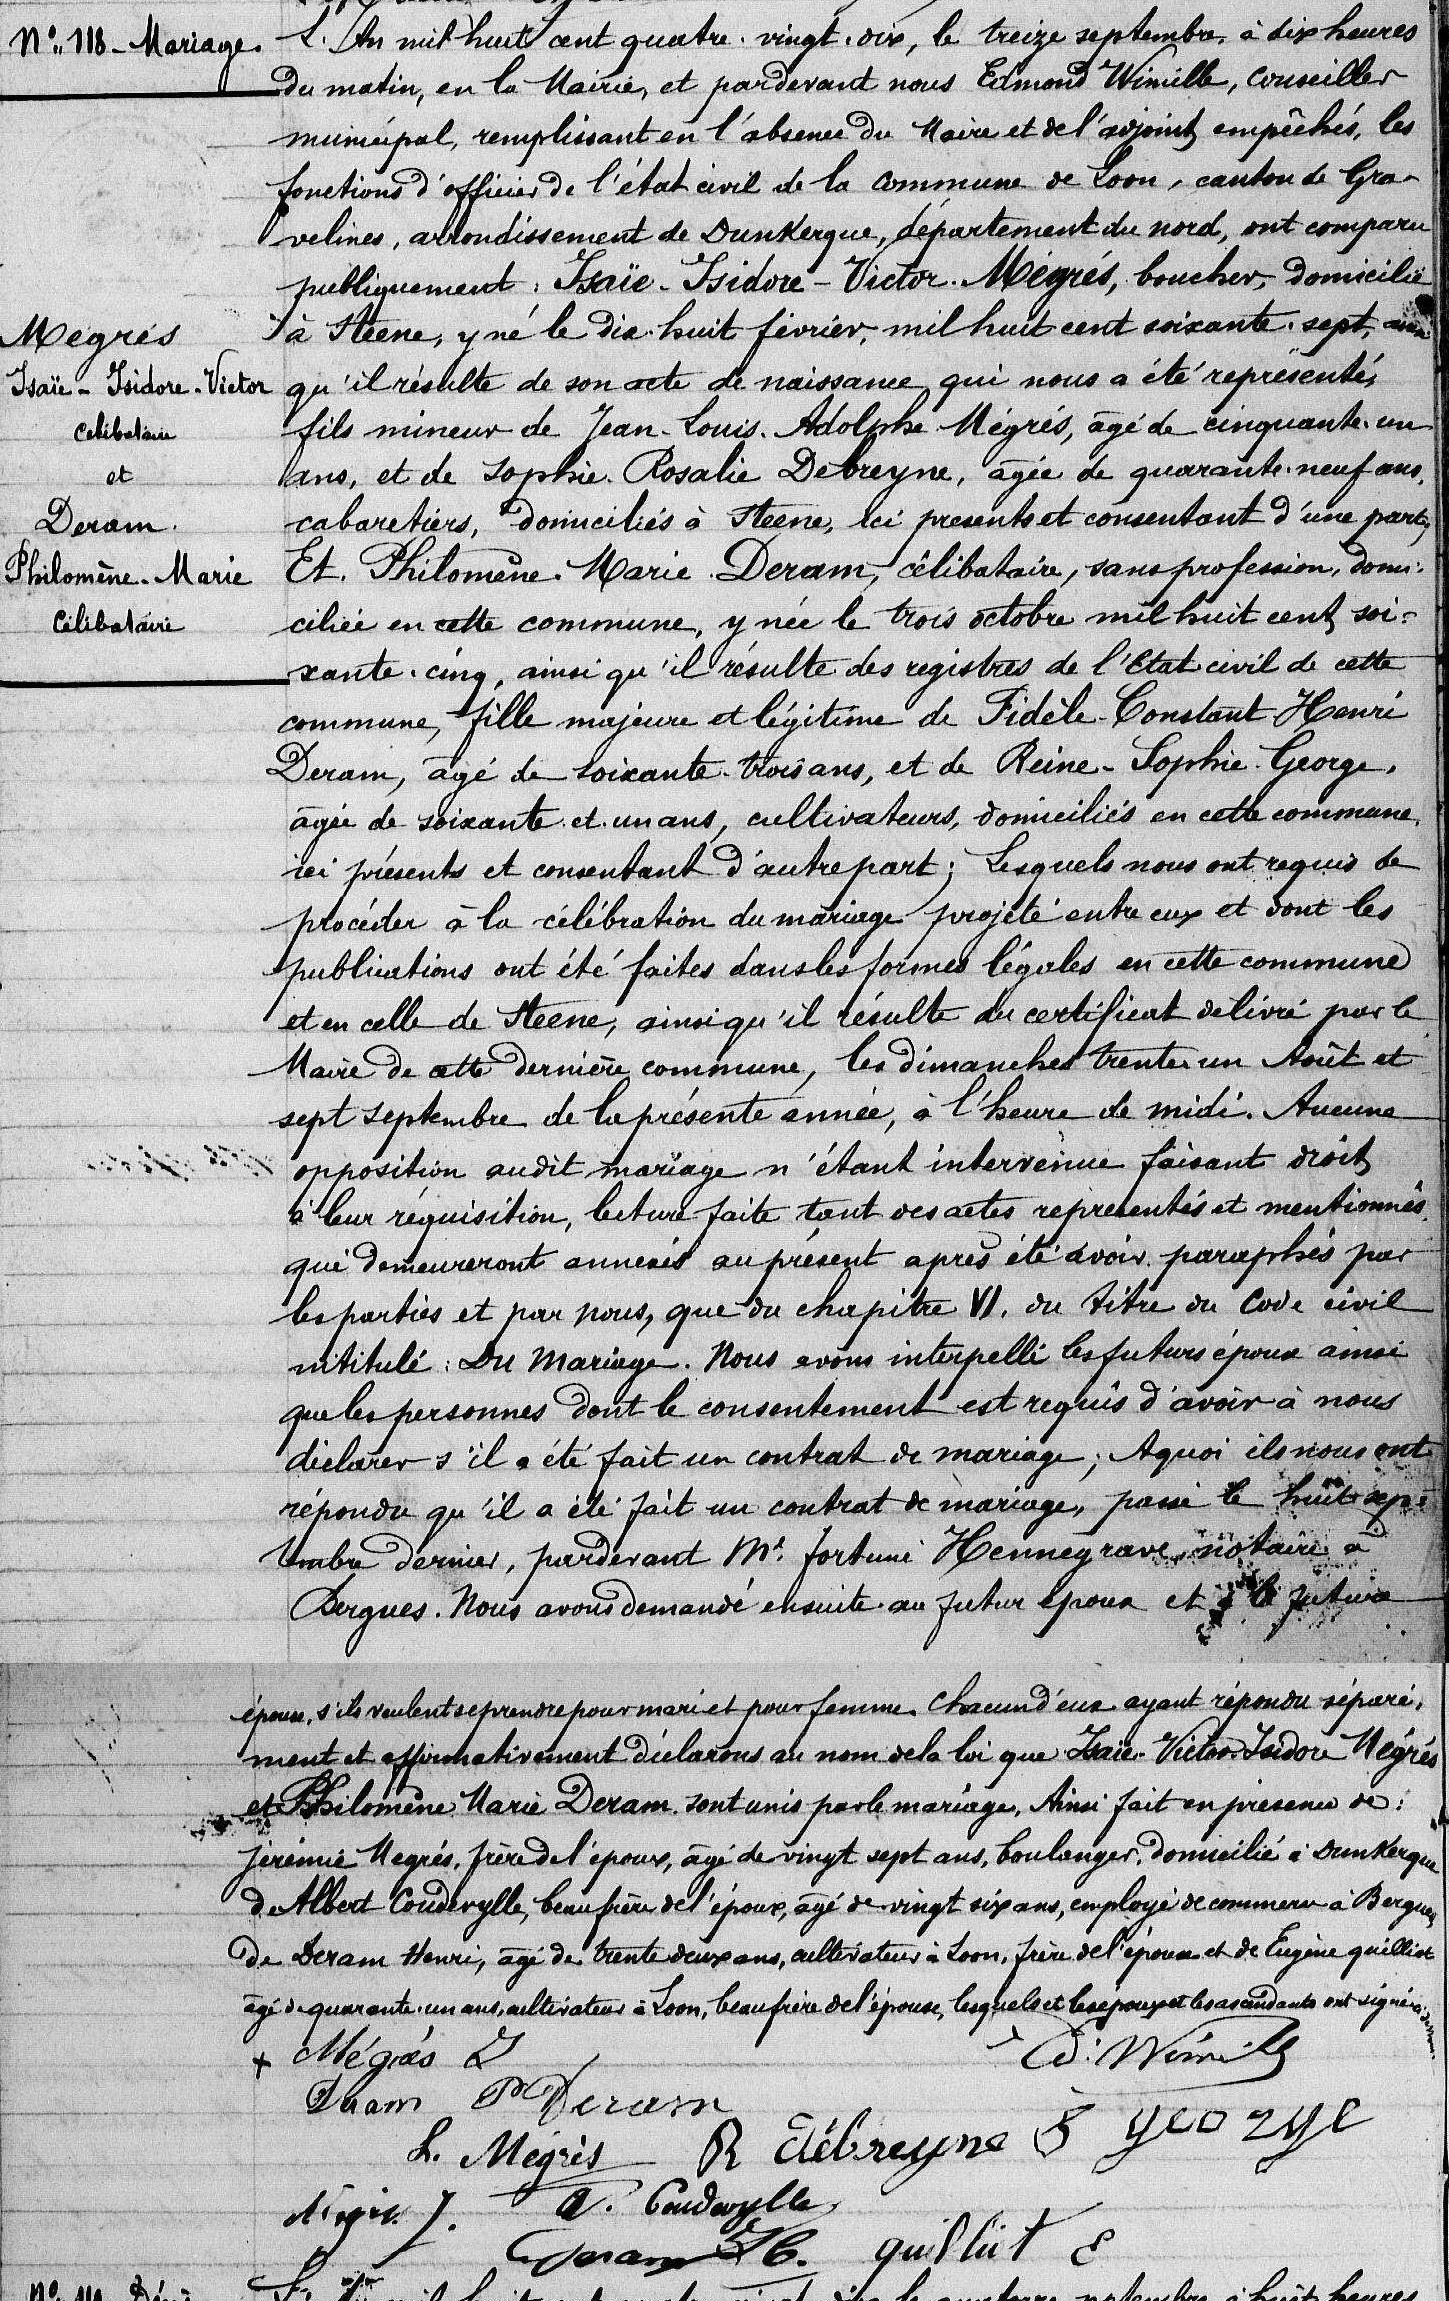 N° 118 - Mariage.
L'An mil huit cent quatre-vingt-dix, le treize septembre, à dix heures
du matin, en la Mairie, et pardevant nous Edmond Wimille, conseiller
municipal, remplissant en l'absence du Maire et de l'adjoint empêchés, les
fonctions d'officier de l'état civil de la commune de Loon, canton de Gra-
velines, arrondissement de Dunkerque, département du nord, ont comparu
publiquement : Isaïe - Isidore - Victor Mégrés, boucher, domicilié
à Steene, y né le dix-huit février, mil huit cent soixante-sept, ainsi
qu'il résulte de son acte de naissance qui nous a été représenté,
fils mineur de Jean-Louis-Adolphe Mégrés, âgé de cinquante-un
ans, et de Sophie-Rosalie Debreyne, âgée de quarante-neuf ans,
cabaretiers, domiciliés à Steene, ici presents et consentant d'une part,
Et Philomène-Marie Deram, célibataire, sans profession, domi-
ciliée en cette commune, y née le trois octobre mil huit cent soi-
xante-cinq, ainsi qu'il résulte des registres de l'Etat civil de cette
commune, fille majeure et légitime de Fidèle-Constant-Henri
Deram, âgé de soixante-trois ans, et de Reine-Sophie George,
âgée de soixante et un ans, cultivateurs, domiciliés en cette commune,
ici présents et consentant d'autre part ; Lesquels nous ont requis de
procéder à la célébration du mariage projeté entre eux et dont les
publications ont été faites dans les formes légales en cette commune
et en celle de Steene, ainsi qu'il résulte du certificat délivré par le
Maire de cette dernière commune, les dimanches trente-un Août et
sept septembre de la présente année, à l'heure de midi. Aucune
opposition audit mariage n'étant intervenue faisant droit
à leur réquisition, lecture faite tant des actes représentés et mentionnés
qui demeureront annexés au présent après été avoir paraphés par
les parties et par nous, que du chapitre VI. du titre du Code civil
intitulé : Du Mariage. Nous avons interpellé les futurs époux ainsi
que les personnes dont le consentement est requis d'avoir à nous
déclarer s'il a été fait un contrat de mariage ; Aquoi ils nous ont
répondu qu'il a été fait un contrat de mariage, passé le huit sep-
tembre dernier, pardevant Me Fortuné Hennegrave, notaire à
Bergues. Nous avons demandé ensuite au futur époux et à la future
Mégrés
Isaïe - Isidore - Victor
célibataire
et
Deram
Philomène - Marie
Célibataire
épouse, s'ils veulent se prendre pour mari et pour femme. Chacun d'eux ayant répondu séparé-
ment et affirmativement déclarons au nom de la loi que Isaïe-Victor-Isidore Mégrés
et Philomène Marie Deram sont unis par le mariage. Ainsi fait en présence de :
Jérémie Megrés, frère de l'époux, âgé de vingt sept ans, boulanger, domicilié à Dunkerque
de Albert Coudevylle, beau frère de l'époux, âgé de vingt six ans, employé de commerce à Bergues,
de Deram Henri, âgé de trente deux ans, cultivateur à Loon, frère de l'épouse et de Eugène quilliot
âgé de quarante-un ans, cultivateur à Loon, beau frère de l'épouse, lesquels et les époux et les ascendants ont signé
+ Mégrés I Ed. Wimille
Deram P Deram
L. Mégrès R débreyne S george
Mégrés J. A. Coudevylle
Deram H. quilliot E